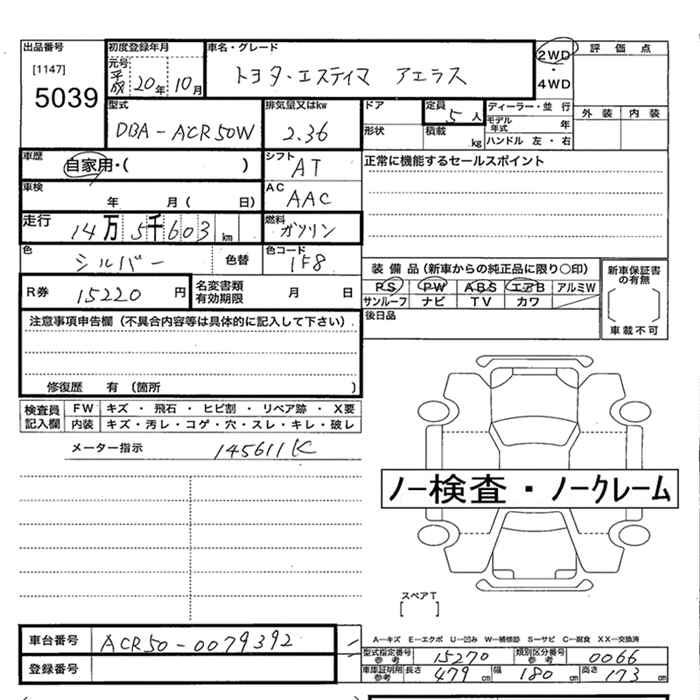 出品番号
[1147]
5039
初度登録年月
元号
平成 20年 10月
車名・グレード
トヨタ・エスティマ アエラス
2WD
・
4WD
評価点
型式
DBA-ACR50W
排気量又はkw
2.36
ドア
形状
定員
5人
積載
kg
ディーラー・並 行
モデル年式 年
ハンドル 左・右
外装 内装
車歴
自家用・( )
シフト
AT
正常に機能するセールスポイント
車検
年 月( 日)
AC
AAC
走行
14万5千603km
燃料
ガソリン
色
シルバー
色替
色コード
1F8
装備品(新車からの純正品に限り○印)
PS PW ABS エアB アルミW
サンルーフ ナビ TV カワ
新車保証書の有無
車載不可
R券
15220円
名変書類有効期限
月 日
後日品
注意事項申告欄(不具合内容等は具体的に記入して下さい)
修復歴 有(箇所 )
検査員記入欄
FW キズ・飛石・ヒビ割・リペア跡・X要
内装 キズ・汚レ・コゲ・穴・スレ・キレ・破レ
メーター指示
145611K
ノー検査・ノークレーム
スペアT
[ ]
車台番号
ACR50-0079392
登録番号
A−キズ E−エクボ U−凹み W−補修跡 S−サビ C−腐食 XX−交換済
型式指定番号参考
15270
類別区分番号参考
0066
車庫証明用参考
長さ 479cm 幅 180cm 高さ 173cm